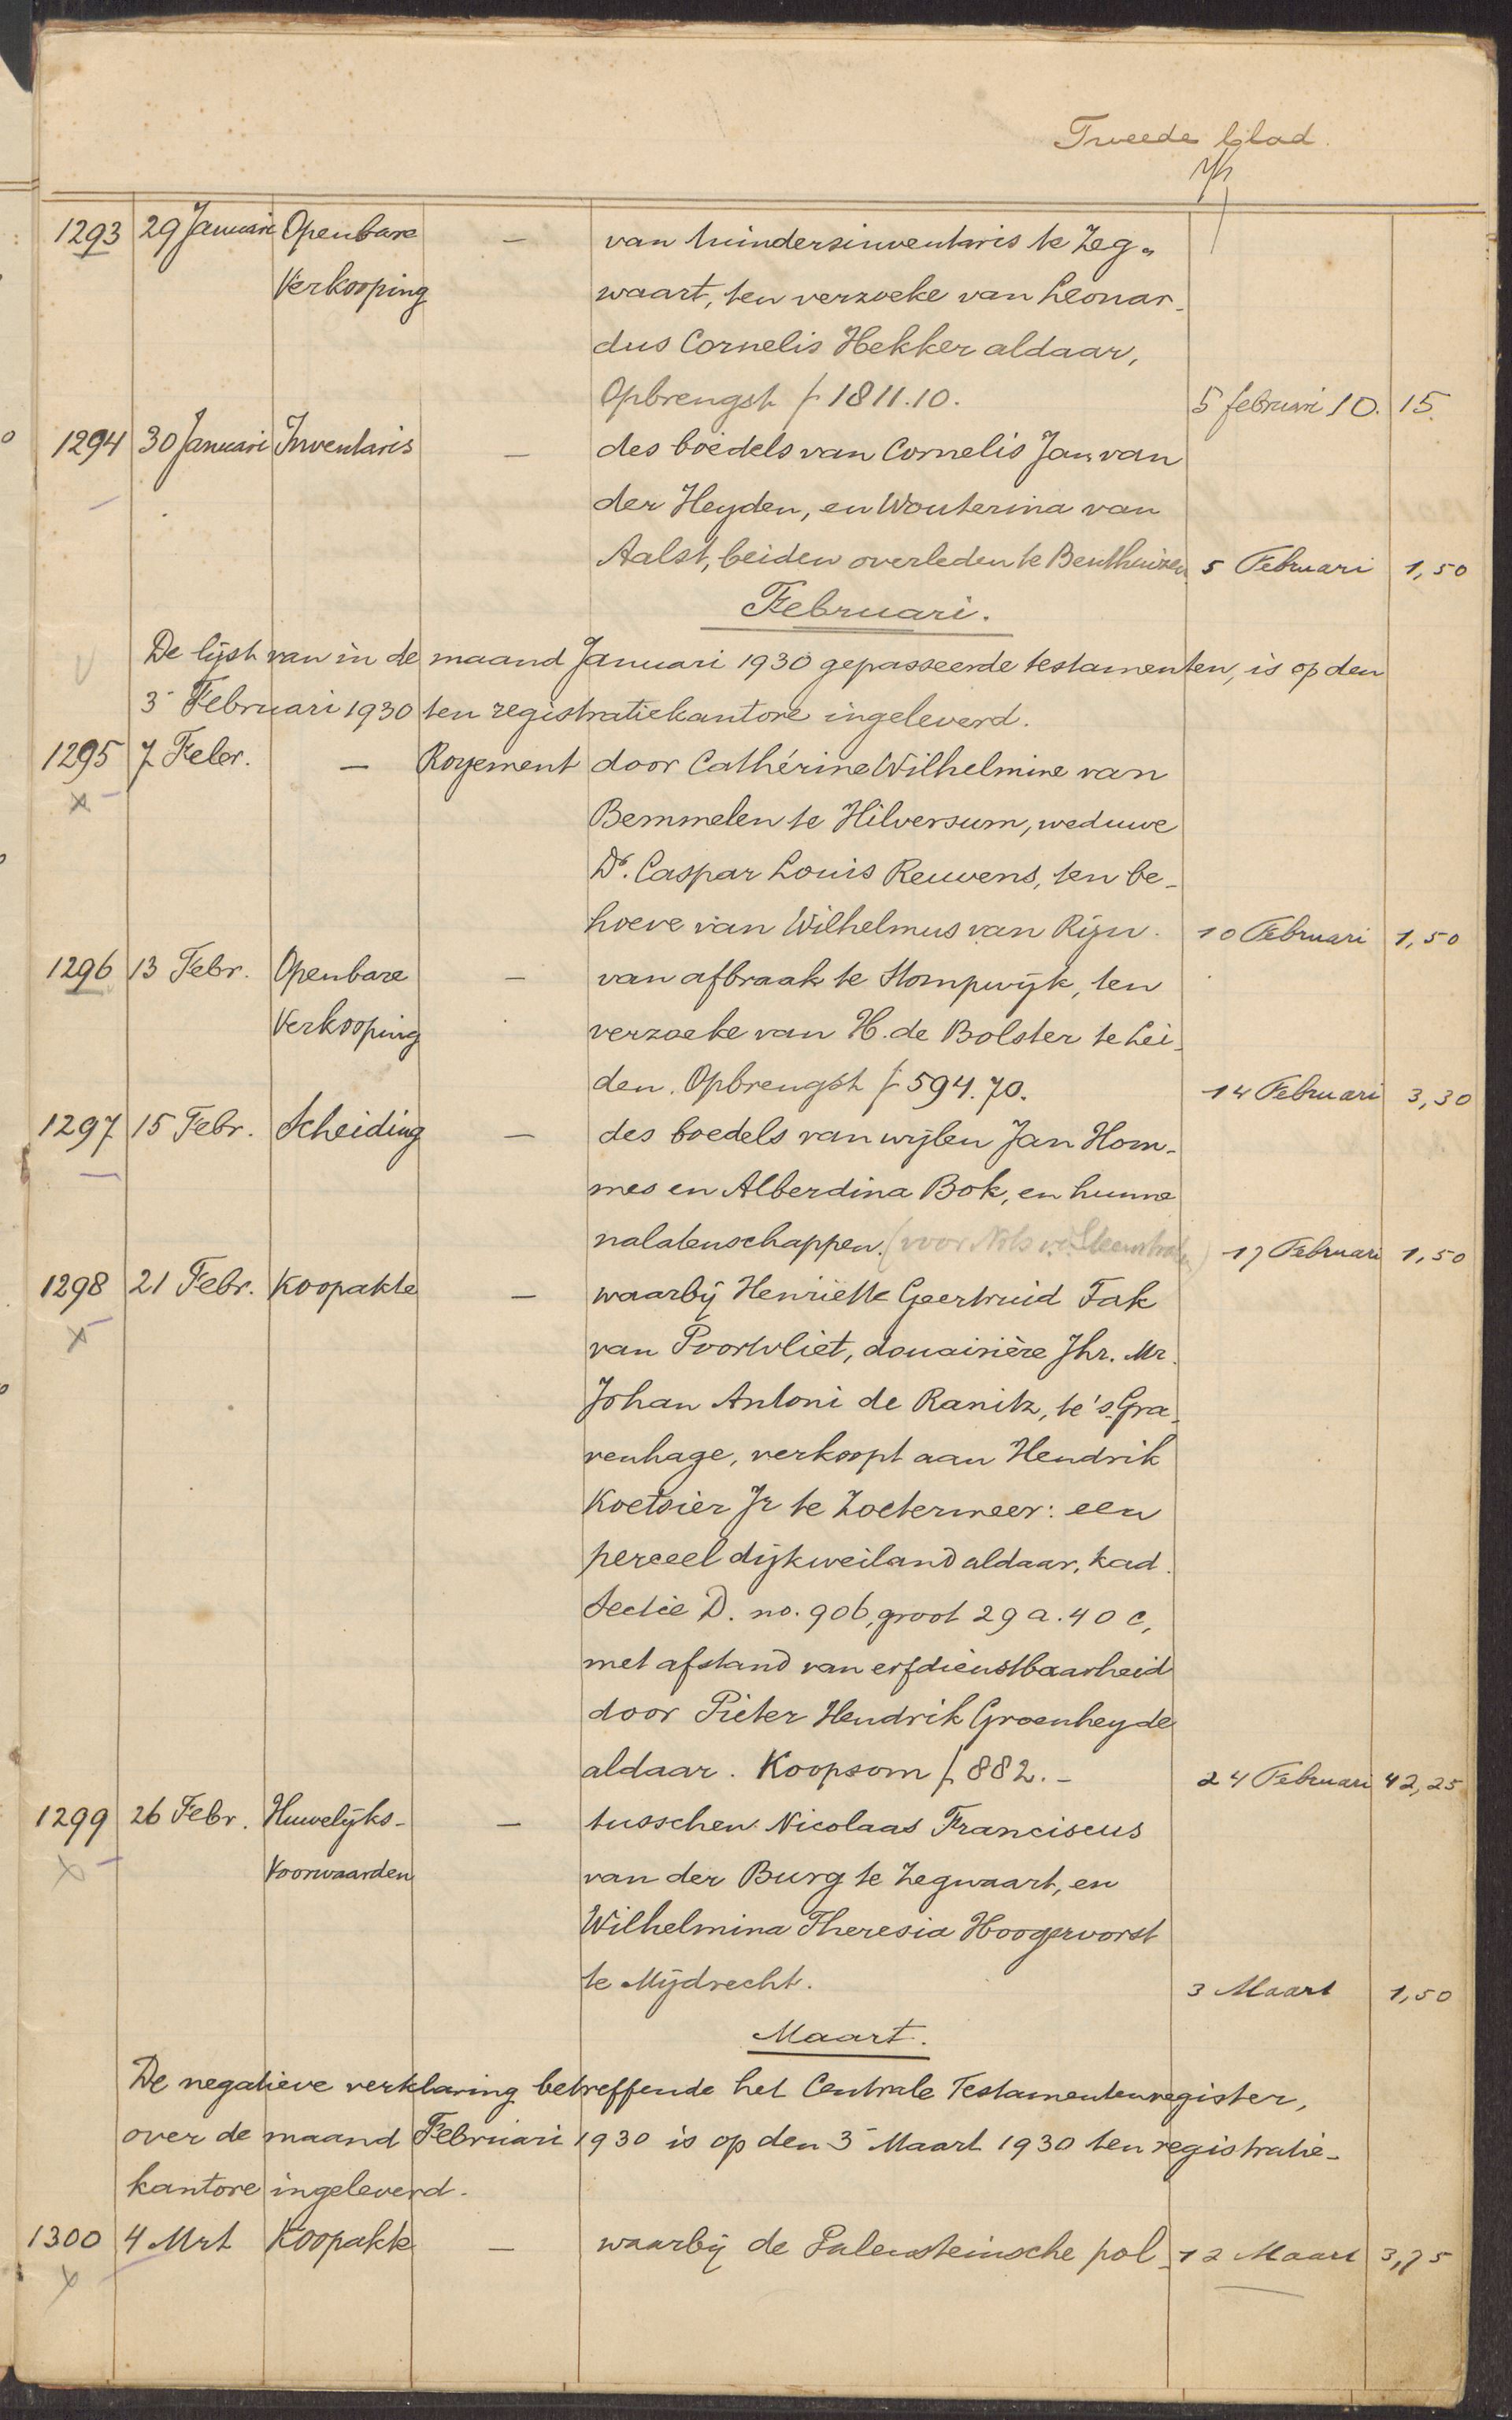 Tweede blad.
1293 29 Januari Openbare — van tuindersinventaris te Zeg-
Verkooping waart, ten verzoeke van Leonar-
dus Cornelis Hekker aldaar,
Opbrengst f 1811.10. 5 februari 10. 15
1294 30 Januari Inventaris — des boedels van Cornelis Jan van
der Heyden, en Wouterina van
Aalst, beiden overleden te Benthuizen 5 Februari 1,50
Februari.
De lijst van in de maand Januari 1930 gepasseerde testamenten, is op den
3 Februari 1930 ten registratiekantore ingeleverd.
1295 7 Febr. — Royement door Cathérine Wilhelmine van
Bemmelen te Hilversum, weduwe
Dr. Caspar Louis Reuvens, ten be-
hoeve van Wilhelmus van Rijn. 10 Februari 1,50
1296 13 Febr. Openbare — van afbraak te Stompwijk, ten
Verkooping verzoeke van H. de Bolster te Lei-
den. Opbrengst f 594.70. 14 Februari 3,30
1297 15 Febr. Scheiding — des boedels van wijlen Jan Hom-
mes en Alberdina Bok, en hunne
nalatenschappen. (voor Nots 17 Februari 1,50
1298 21 Febr. Koopakte — waarbij Henriëtte Geertruid Fak
van Poortvliet, douairière Jhr. Mr.
Johan Antoni de Ranitz, te 's-Gra-
venhage, verkoopt aan Hendrik
Koetsier Jr te Zoetermeer: een
perceel dijkweiland aldaar, kad.
Sectie D. no. 906, groot 29 a. 40 c,
met afstand van erfdienstbaarheid
door Pieter Hendrik Groenheyde
aldaar. Koopsom f 882.- 24 Februari 42,25
1299 26 Febr. Huwelijks- — tusschen Nicolaas Franciscus
Voorwaarden van der Burg te Zegwaart, en
Wilhelmina Theresia Hoogervorst
te Mijdrecht. 3 Maart 1,50
Maart.
De negatieve verklaring betreffende het Centrale Testamentenregister,
over de maand Februari 1930 is op den 3 Maart 1930 ten registratie-
kantore ingeleverd.
1300 4 Mrt Koopakte — waarbij de Palensteinsche pol- 12 Maart 3,75